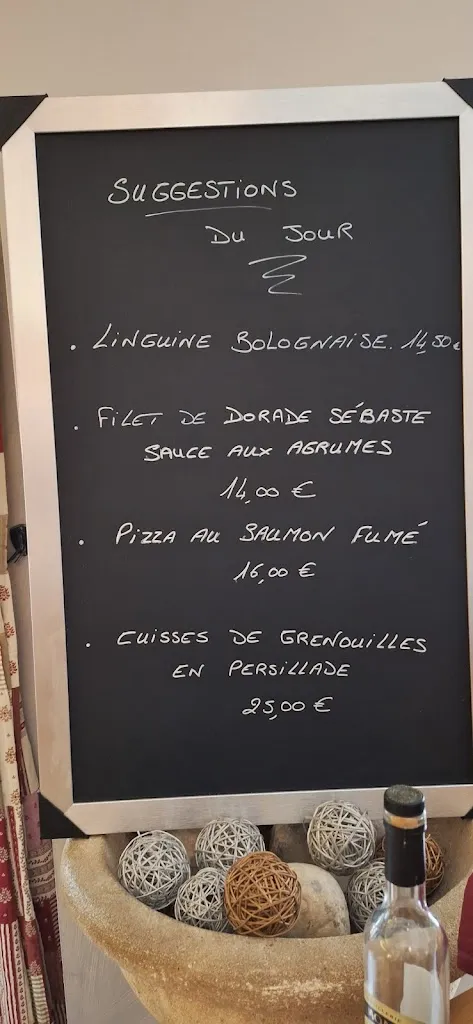 SUGGESTIONS
DU JOUR
. LINGUINE BOLOGNAISE. 14,50€
. FILET DE DORADE SÉBASTE
SAUCE AUX AGRUMES
14,00 €
. PIZZA AU SAUMON FUMÉ
16,00 €
. CUISSES DE GRENOUILLES
EN PERSILLADE
25,00 €